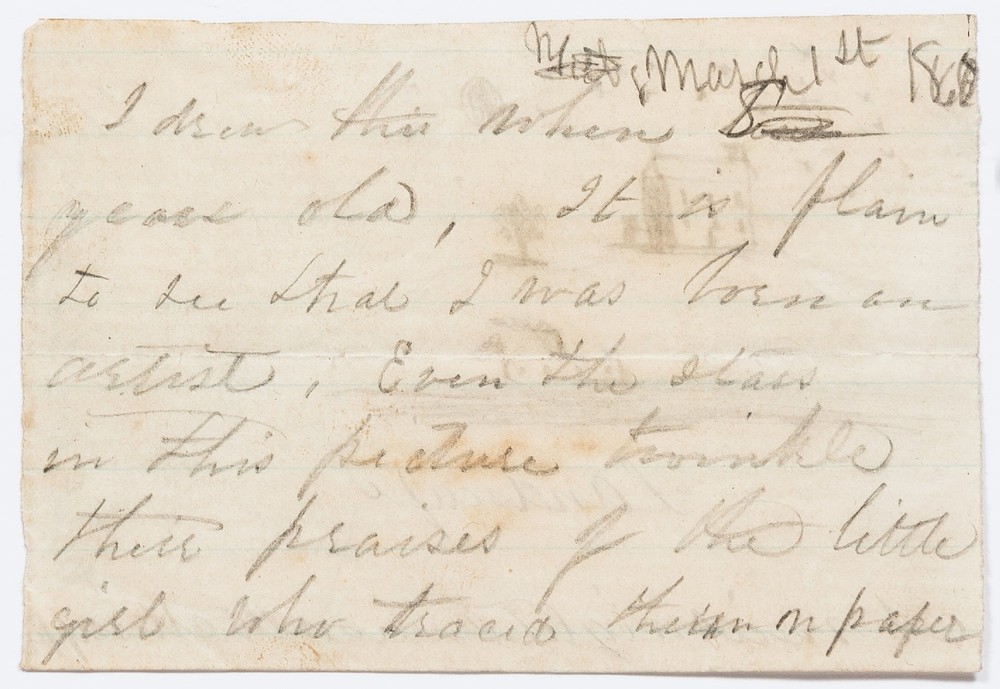 March 1st 186
I drew this when 8
years old, It is plain
to see that I was born an
artist, Even the stars
in this picture twinkle
their praises of the little
girl who traced them on paper